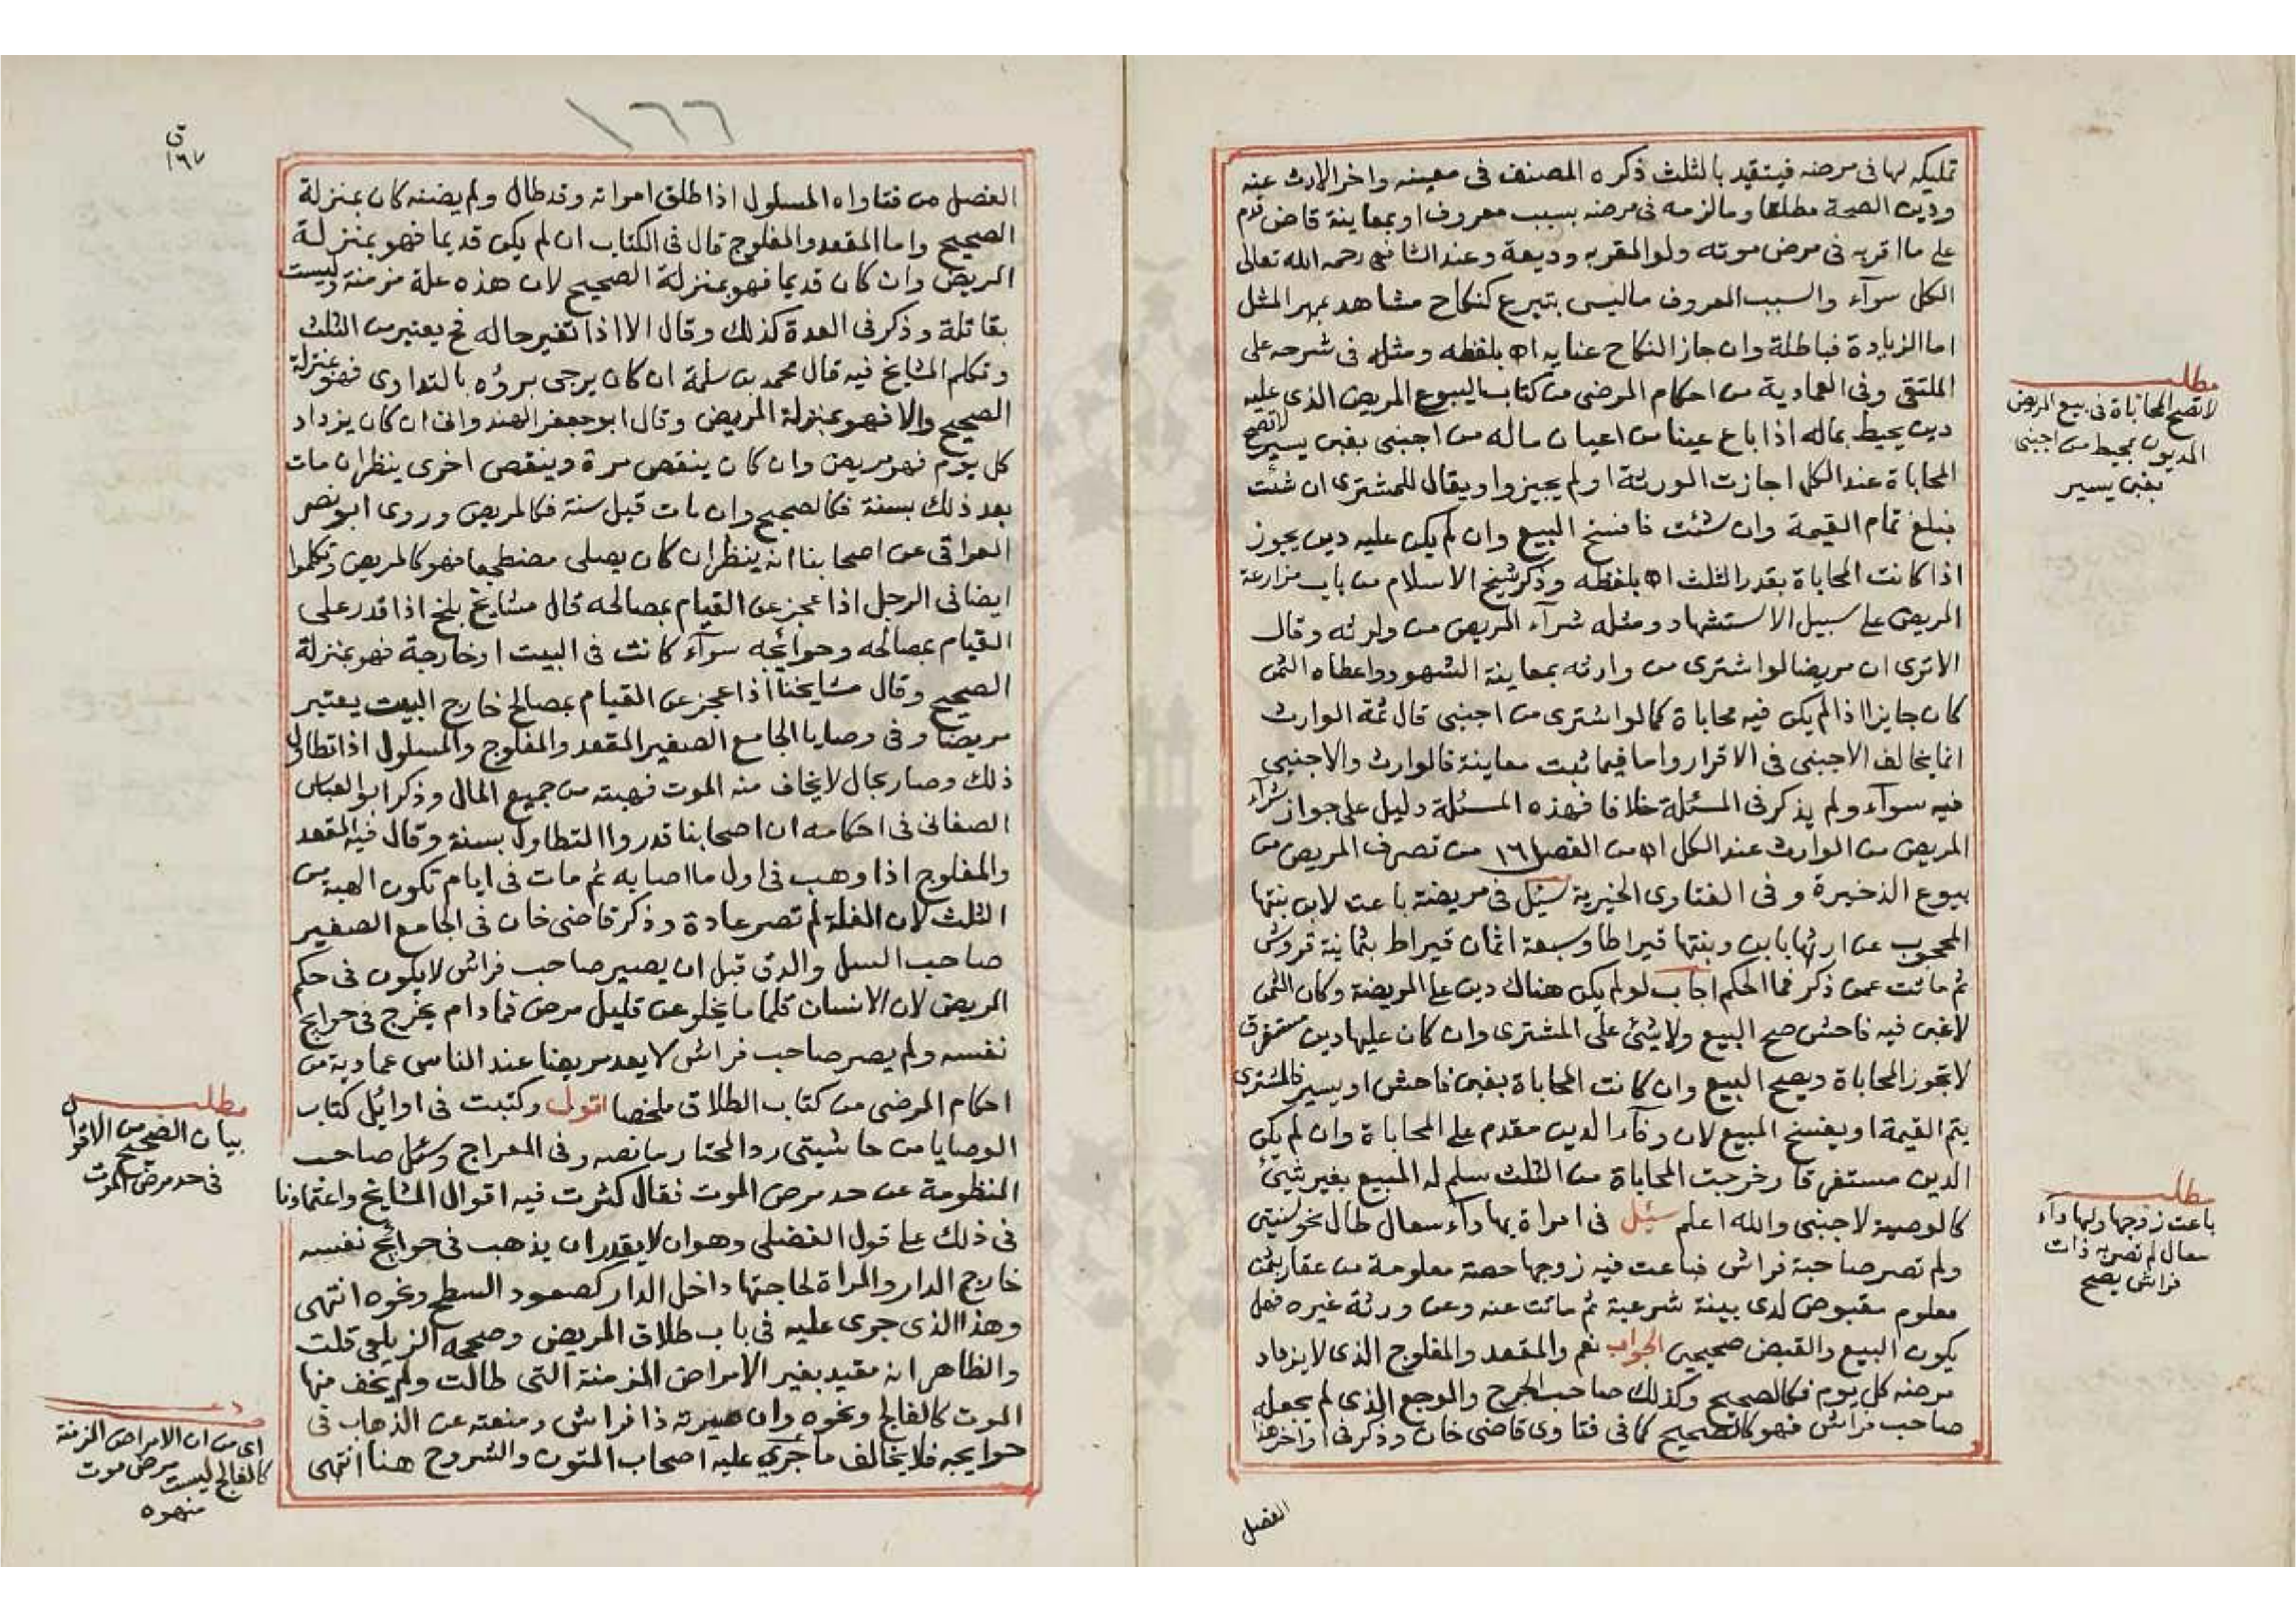 تمليكه لها في مرضه فيتقيد بالثلث ذكره المصنف في معينه واخر الارث عنه
ودين الصحة مطلقا وما لزمه في مرضه بسبب معروف او بمعاينة قاض قدم
على ما اقر به في مرض موته ولو المقر به وديعة وعند الشافعي رحمه الله تعالى
الكل سوآء والسبب المعروف ما ليس بتبرع كنكاح مشاهد بمهر المثل
اما الزيادة فباطلة وان جاز النكاح عنايه اه بلفظه ومثله في شرحه على
الملتقى وفي العمادية من احكام المرضى من كتاب البيوع المريض الذي عليه
دين يحيط بماله اذا باع عينا من اعيان ماله من اجنبي بغبن يسير لا تصح
المحاباة عند الكل اجازت الورثة او لم يجيزوا ويقال للمشتري ان شئت
فبلغ تمام القيمة وان شئت فافسخ البيع وان لم يكن عليه دين يجوز
اذا كانت المحاباة بقدر الثلث اه بلفظه وذكر شيخ الاسلام من باب مزارعة
المريض على سبيل الاستشهاد ومثله شرآء المريض من وارثه وقال
الا ترى ان مريضا لو اشترى من وارثه بمعاينة الشهود واعطاه الثمن
كان جايزا اذا لم يكن فيه محاباة كما لو اشترى من اجنبي قال ثمة الوارث
انما يخالف الاجنبي في الاقرار واما فيما ثبت معاينة فالوارث والاجنبي
فيه سوآء ولم يذكر في المسئلة خلافا فهذه المسئلة دليل على جواز شرآء
المريض من الوارث عند الكل اه من الفصل ١٦ من تصرف المريض من
بيوع الذخيرة وفي الفتاوى الخيرية سئل في مريضة باعت لابن بنتها
المحجوب عن ارثها بابن وبنتها قيراطا وسبعة اثمان قيراط بثمانية قروش
ثم ماتت عمن ذكر فما الحكم اجاب لو لم يكن هناك دين على المريضة وكان الثمن
لا غبن فيه فاحش صح البيع ولا شئ على المشتري وان كان عليها دين مستغرق
لا تجوز المحاباة ويصح البيع وان كانت المحاباة بغبن فاحش او يسير فالمشتري
يتم القيمة او يفسخ المبيع لان وفآء الدين مقدم على المحاباة وان لم يكن
الدين مستغرقا وخرجت المحاباة من الثلث سلم له المبيع بغير شئ
كالوصية لاجنبي والله اعلم سئل في امراة بها دآء سعال طال نحو سنتين
ولم تصر صاحبة فراش فباعت فيه زوجها حصة معلومة من عقار بثمن
معلوم مقبوض لدى بينة شرعية ثم ماتت عنه وعن ورثة غيره فهل
يكون البيع والقبض صحيحين الجواب نعم والمقعد والمفلوج الذي لا يزداد
مرضه كل يوم فكالصحيح وكذلك صاحب الجرح والوجع الذي لم يجعله
صاحب فراش فهو كالصحيح كما في فتاوى قاضي خان وذكر في اواخر هذا
الفصل
مطلب
لا تصح المحاباة في بيع المريض
المديون بمحيط من اجنبي
بغبن يسير
مطلب
باعت زوجها ولها دآء
سعال لم تصر به ذات
فراش يصح
١٦٦
ق
١٦٧
الفصل من فتاواه المسلول اذا طلق امراته وقد طال ولم يضنه كان بمنزلة
الصحيح واما المقعد والمفلوج قال في الكتاب ان لم يكن قديما فهو بمنزلة
المريض وان كان قديما فهو بمنزلة الصحيح لان هذه علة مزمنة وليست
بقاتلة وذكر في العدة كذلك وقال الا اذا تغير حاله فح يعتبر من الثلث
وتكلم المشايخ فيه قال محمد بن سلمة ان كان يرجى برؤه بالتداوى فهو بمنزلة
الصحيح والا فهو بمنزلة المريض وقال ابو جعفر الهندوانى ان كان يزداد
كل يوم فهو مريض وان كان ينقص مرة وينقص اخرى ينظر ان مات
بعد ذلك بسنة فكالصحيح وان مات قبل سنة فكالمريض وروى ابو نصر
العراقي عن اصحابنا انه ينظر ان كان يصلى مضطجعا فهو كالمريض وتكلموا
ايضا في الرجل اذا عجز عن القيام بمصالحه قال مشايخ بلخ اذا قدر على
القيام بمصالحه وحوائجه سوآء كانت في البيت او خارجة فهو بمنزلة
الصحيح وقال مشايخنا اذا عجز عن القيام بمصالح خارج البيت يعتبر
مريضا وفي وصايا الجامع الصغير المقعد والمفلوج والمسلول اذا تطاول
ذلك وصار بحال لا يخاف منه الموت فهبته من جميع المال وذكر ابو العباس
الصغانى في احكامه ان اصحابنا قدروا التطاول بسنة وقال فيه المقعد
والمفلوج اذا وهب في اول ما اصابه ثم مات في ايام تكون الهبة من
الثلث لان الغلة لم تصر عادة وذكر قاضي خان في الجامع الصغير
صاحب السل والدق قبل ان يصير صاحب فراش لا يكون في حكم
المريض لان الانسان قلما ما يخلو عن قليل مرض فما دام يخرج في حوايج
نفسه ولم يصر صاحب فراش لا يعد مريضا عند الناس عمادية من
احكام المرضى من كتاب الطلاق ملخصا اقول وكتبت في اوائل كتاب
الوصايا من حاشيتى رد المحتار ما نصه وفي المعراج وسئل صاحب
المنظومة عن حد مرض الموت فقال كثرت فيه اقوال المشايخ واعتمادنا
في ذلك على قول الفضلى وهو ان لا يقدر ان يذهب في حوائج نفسه
خارج الدار والمراة لحاجتها داخل الدار كصعود السطح ونحوه انتهى
وهذا الذي جرى عليه في باب طلاق المريض وصححه الزيلعى قلت
والظاهر انه مقيد بغير الامراض المزمنة التى طالت ولم يخف منها
الموت كالفالج ونحوه وان صيرته ذا فراش ومنعته عن الذهاب في
حوايجه فلا يخالف ما جرى عليه اصحاب المتون والشروح هنا انتهى
مطلب
بيان الصحيح من الاقوال
في حد مرض الموت
اى من ان الامراض المزمنة
كالفالج ليست مرض موت
منه